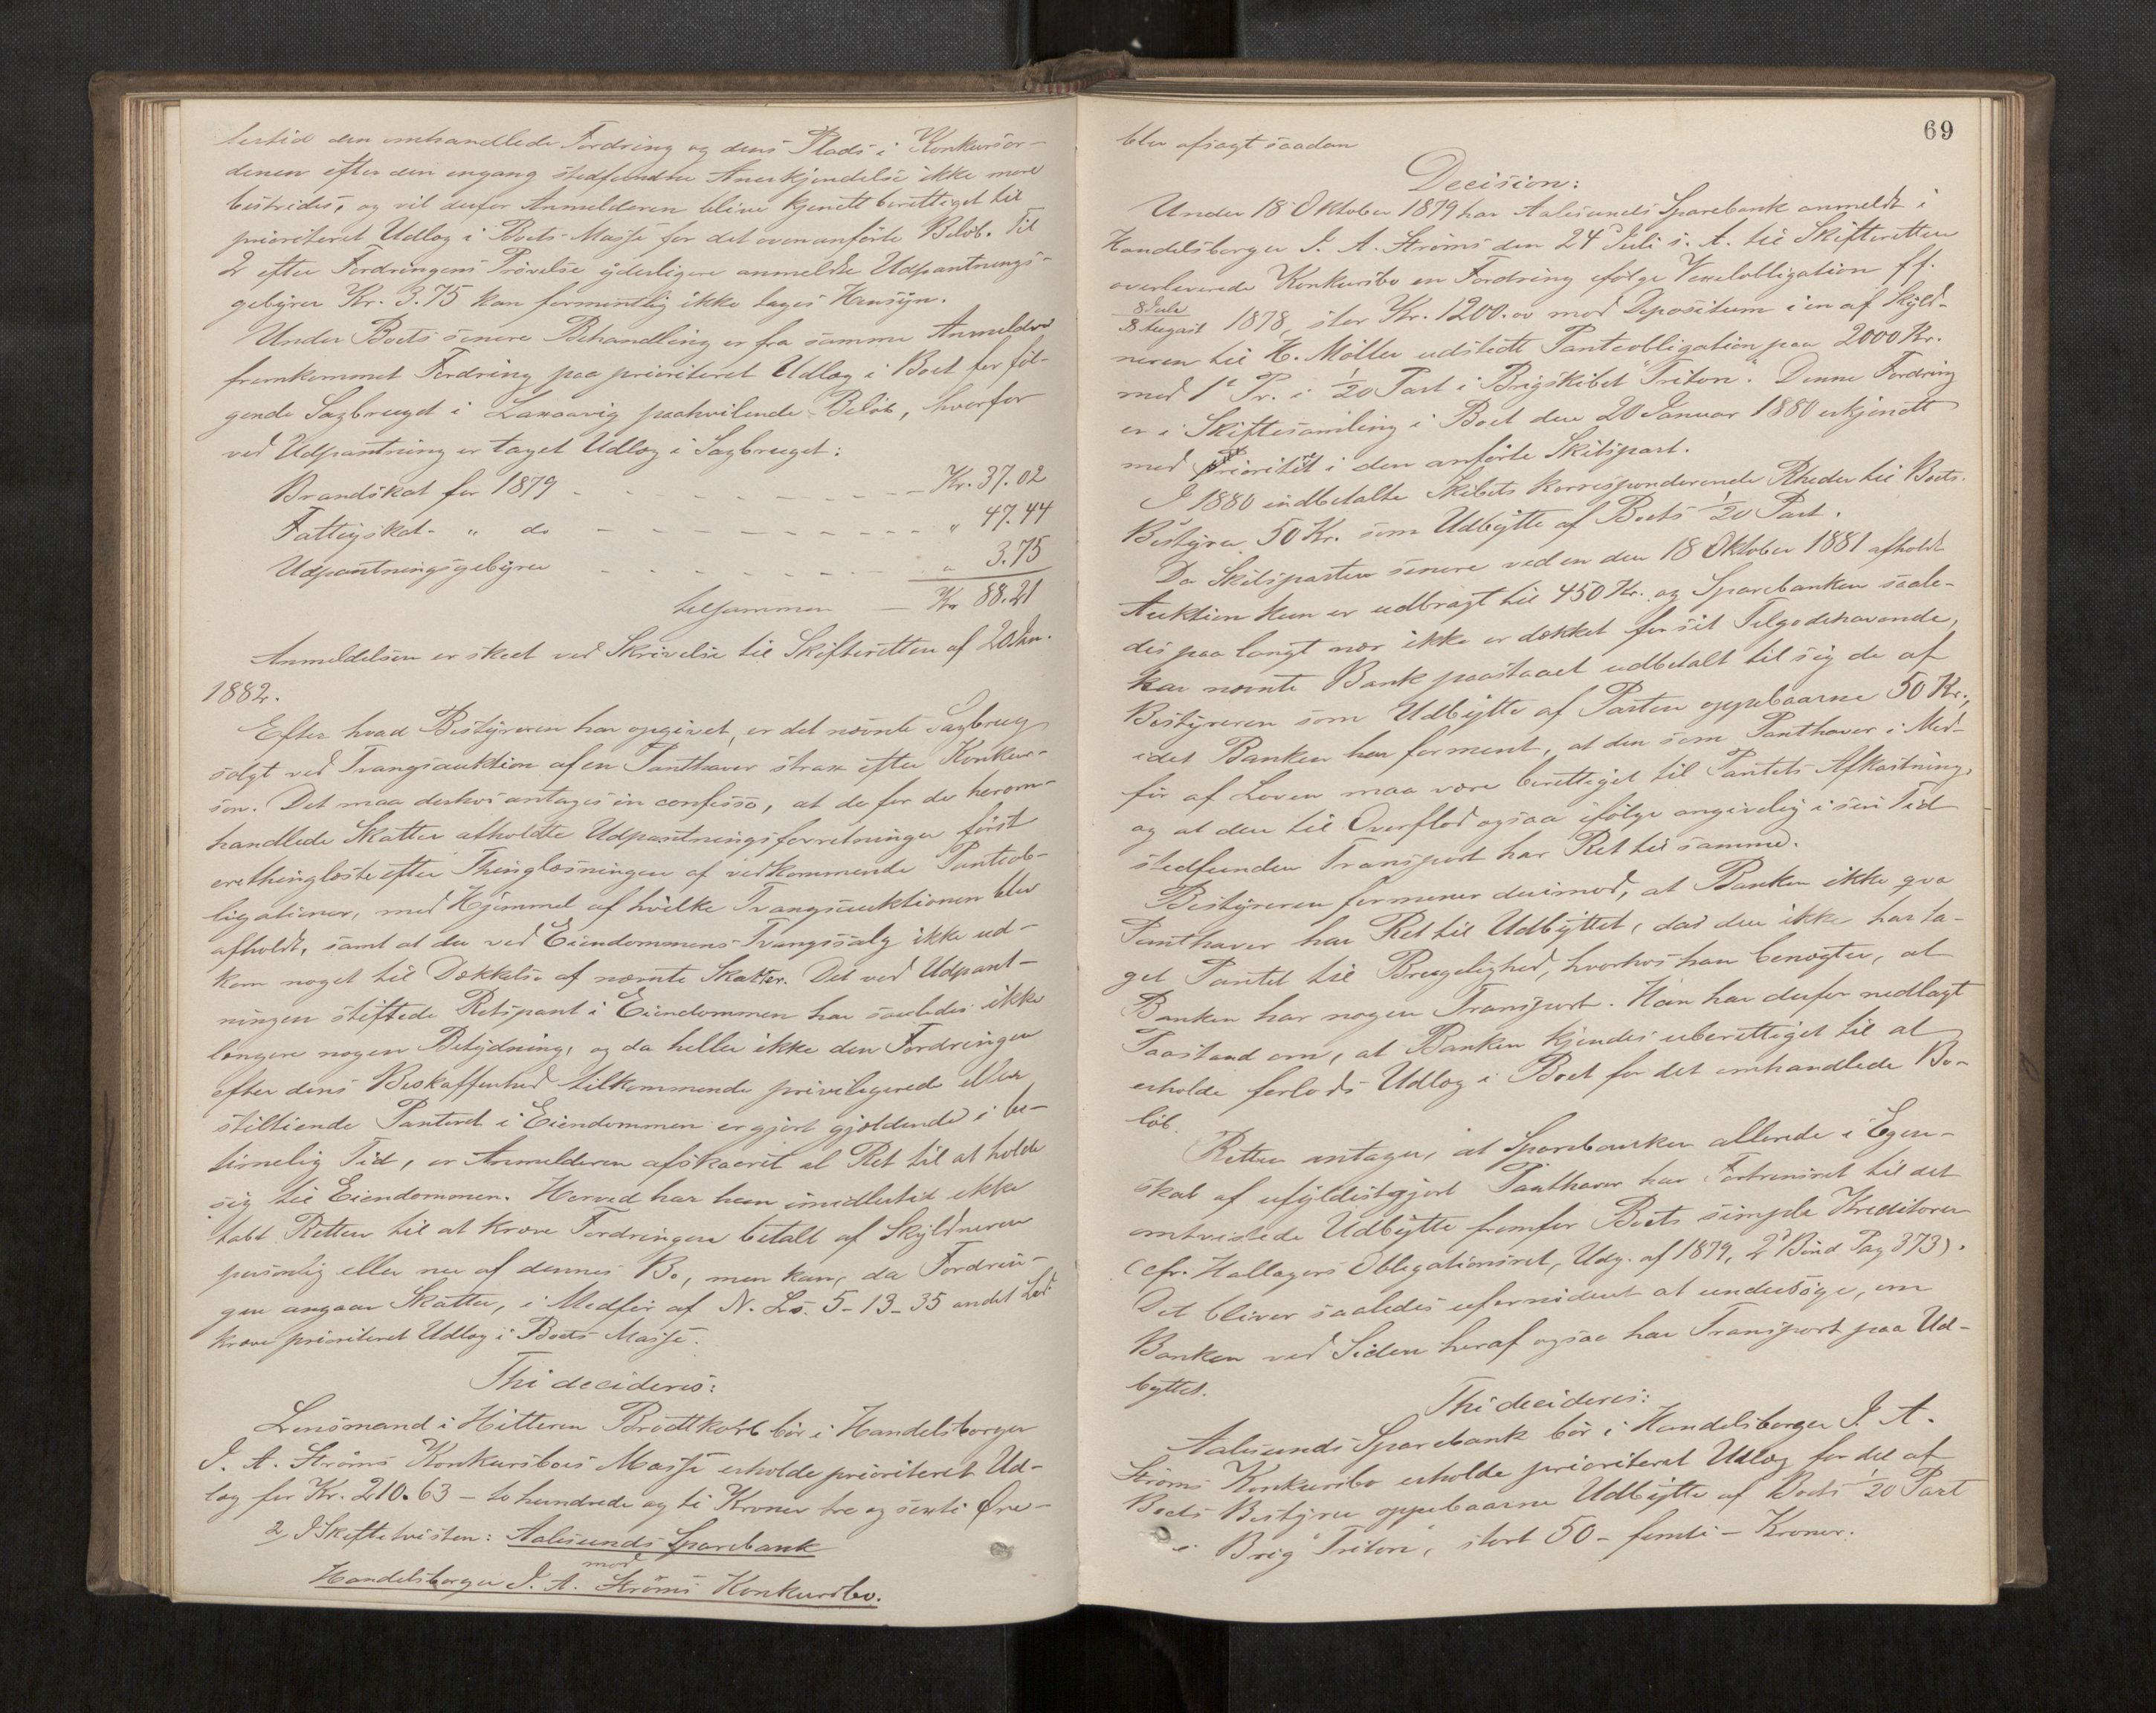 lertid den omhandlede Fordring og dens Plads i Konkursor-
denen efter den engang stedfundne Anerkjendelse ikke mere
bestrides, og vil derfor Anmelderen blive kjendt berettiget til
prioriteret Udlæg i Boets Masse for det ovenanførte Beløb. Til
2 efter Fordringens Prøvelse yderligere anmeldte Udpantnings-
gebyrer Kr. 3.75 kan formentlig ikke tages Hensyn.
Under Boets senere Behandling er fra samme Anmelder
fremkommet Fordring paa prioriteret Udlæg i Boet for föl-
gende Sagbruget i paahvilende Beløb, hvorfor
ved Udpantning er taget Udlæg i Sagbruget:
Brandskat for 1879 - - - Kr. 37.02
Fattigskat - " do - - - " 47.44
Udpantningsgebyrer - - - " 3.75
tilsammen - Kr 88.21
Anmeldelsen er skeet ved Skrivelse til Skifteretten af 20 Jan.
1882.
Efter hvad Bestyreren har opgivet, er det nævnte Sagbrug
solgt ved Tvangsauktion af en Panthaver strax efter Konkur-
sen. Det maa derhos antages in confesso, at de for de herom-
handlede Skatter afholdte Udpantningsforretninger först
ere thinglæste efter Thinglæsningen af vedkommende Panteob-
ligationer, med Hjemmel af hvilke Tvangsauktionen blev
afholdt, samt at der ved Eiendommens Tvangssalg ikke ud-
kom noget til Dækkelse af nævnte Skatter. Det ved Udpant-
ningen stiftede Retspant i Eiendommen har saaledes ikke
længere nogen Betydning, og da heller ikke den Fordringen
efter dens Beskaffenhed tilkommende privilegerede eller
stiltiende Panteret i Eiendommen er gjort gjældende i be-
timelig Tid, er Anmelderen afskaaret al Ret til at holde
sig til Eiendommen. Herved har han imidlertid ikke
tabt Retten til at kræve Fordringen betalt af Skyldneren
personlig eller nu af dennes Bo, men kan, da Fordrin-
gen angaar Skatter, i Medför af N. L's. 5-13-35 andet Led
kræve prioriteret Udlæg i Boets Masse.
Thi decideres:
Lensmand i Hitteren Brodtkorb bör i Handelsborger
J. A. Ströms Konkursboes Masse erholde prioriteret Ud-
læg for Kr. 210.63 - to hundrede og ti Kroner tre og sexti Øre -
2, I Skiftetvisten: Aalesunds Sparebank
mod
Handelsborger J. A. Ströms Konkursbo.
69
blev afsagt saadan
Decision:
Under 18 Oktober 1879 har Aalesunds Sparebank anmeldt i
Handelsborger J. A. Ströms den 24 Juli s. A. til Skifteretten
overleverede Konkursbo en Fordring ifölge Vexelobligation ff.
8 Juli
8 August 1878, stor Kr. 1200.00 mod Depositum i en af Skyld-
neren til H. Möller udstedt Panteobligation paa 2000 Kr.
med 1e Pr. i 1/20 Part i Brigskibet "Triton". Denne Fordring
er i Skiftesamling i Boet den 20 Januar 1880 erkjendt
med Prioritet i den anförte Skibspart.
I 1880 indbetalte Skibets korresponderende Rheder til Boets
Bestyrer 50 Kr. som Udbytte af Boets 1/20 Part.
Da Skibsparten senere ved en den 18 Oktober 1881 afholdt
Auktion kun er udbragt til 450 Kr. og Sparebanken saale-
des paa langt nær ikke er dækket for sit Tilgodehavende,
har nævnte Bank paastaaet udbetalt til sig de af
Bestyreren som Udbytte af Parten oppebaarne 50 Kr.,
idet Banken har forment, at den som Panthaver i Med-
för af Loven maa være berettiget til Pantets Afkastning,
og at den til Overflod ogsaa ifölge angivelig i sin Tid
stedfunden Transport har Ret til samme.
Bestyreren formener derimod, at Banken ikke qva
Panthaver har Ret til Udbyttet, da den ikke har ta-
get Pantet til Brugelighed, hvorhos han benægter, at
Banken har nogen Transport. Han har derfor nedlagt
Paastand om, at Banken kjendes uberettiget til at
erholde forlods Udlæg i Boet for det omhandlede Be-
löb.
Retten antager, at Sparebanken allerede i Egen-
skab af ufyldestgjort Panthaver har Fortrinsret til det
omtvistede Udbytte fremfor Boets simple Kreditorer
(cfr. Hallagers Obligationsret, Udg. af 1879, 2d Bind Pag 373).
Det bliver saaledes ufornödent at undersöge, om
Banken ved Siden heraf ogsaa har Transport paa Ud-
byttet.
Thi decideres:
Aalesunds Sparebank bör i Handelsborger J. A.
Ströms Konkursbo erholde prioriteret Udlæg for det af
Boets Bestyrer oppebaarne Udbytte af Boets 1/20 Part
i Brig "Triton", stort 50 - femti - Kroner.